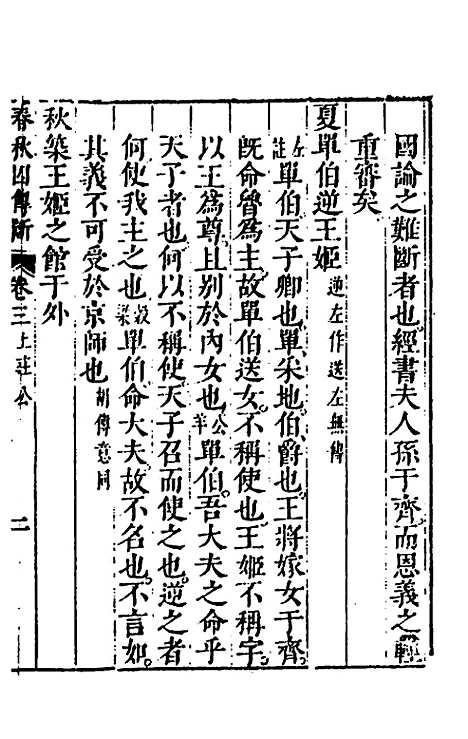 國論之難斷者也經書夫人孫于齊而恩義之輕
重審矣
夏單伯逆王姬逆左作送左無傳
左註單伯天子卿也單采地伯爵也王將嫁女于齊
既命魯爲主故單伯送女不稱使也王姬不稱字
以王爲尊且别於內女也公羊單伯吾大夫之命乎
天子者也何以不稱使天子召而使之也逆之者
何使我主之也穀梁單伯命大夫故不名也不言如
其義不可受於京師也胡傳意同
秋築王姬之館于外
春秋四傳斷 卷三上莊公 二